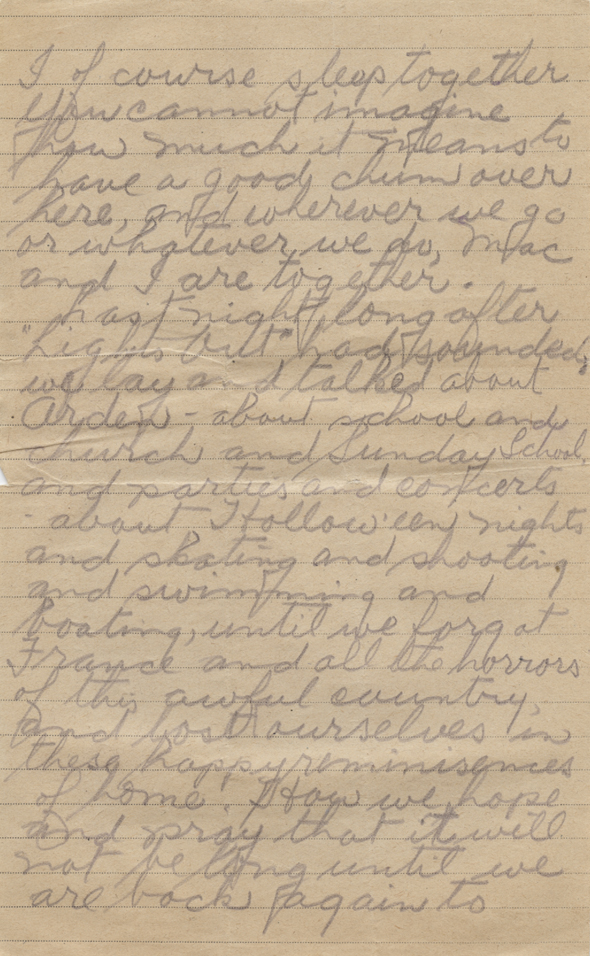 I of course sleep together
you cannot imagine
how much it means to
have a good chum over
here, and wherever we go
or whatever we do, Mac
and I are together.
Last night, long after
"Lights Out" had sounded,
we lay and talked about
Arden - about school and
church and Sunday School,
and parties and concerts
- about Hollow'een nights
and skating and shooting
and swimming and
boating, until we forgot
France and all the horrors
of this awful country,
and lost ourselves in
these happy reminisences
of home! How we hope
and pray that it will
not be long until we
are back again to